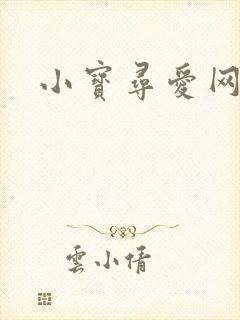 小寶尋愛网
雲小倩